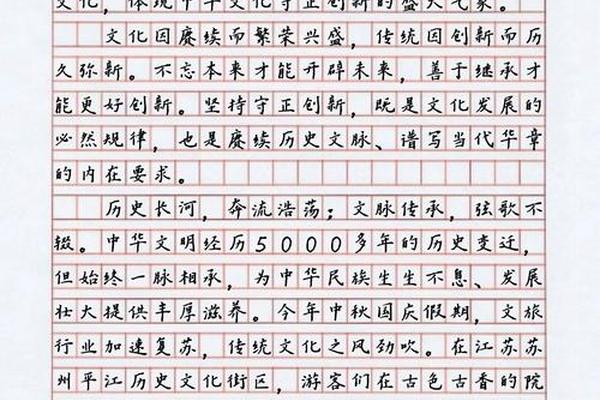 文化，体现中华文化守正创新的盛大气象。
文化因赓续而繁荣兴盛，传统因创新而历
久弥新。不忘本来才能开辟未来，善于继承才
能更好创新。坚持守正创新，既是文化发展的
必然规律，也是赓续历史文脉、谱写当代华章
的内在要求。
历史长河，奔流浩荡；文脉传承，弦歌不
辍。中华文明经历5000多年的历史变迁，
但始终一脉相承，为中华民族生生不息、发展
壮大提供丰厚滋养。今年中秋国庆假期，文旅
行业加速复苏，传统文化之风劲吹。在江苏苏
州平江历史文化街区，游客们在古色古香的院